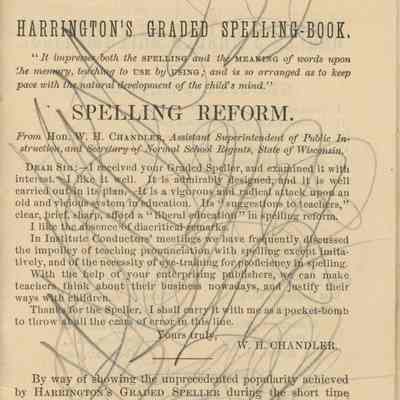 HARRINGTON'S GRADED SPELLING-BOOK.
"It impresses both the SPELLING and the MEANING of words upon
the memory, teaching to USE by USING; and is so arranged as to keep
pace with the natural development of the child's mind."
SPELLING REFORM.
From HON. W. H. CHANDLER, Assistant Superintendent of Public In-
struction, and Secretary of Normal School Regents, State of Wisconsin.
DEAR SIR:—I received your Graded Speller, and examined it with
interest. I like it well. It is admirably designed, and it is well
carried out in its plan. It is a vigorous and radical attack upon an
old and vicious system in education. Its "suggestions to teachers,"
clear, brief, sharp, afford a "liberal education" in spelling reform.
I like the absence of diacritical remarks.
In Institute Conductors' meetings we have frequently discussed
the impolicy of teaching pronunciation with spelling except imita-
tively, and of the necessity of eye-training for proficiency in spelling.
With the help of your enterprising publishers, we can make
teachers think about their business nowadays, and justify their
ways with children.
Thanks for the Speller. I shall carry it with me as a pocket-bomb
to throw at all the crazes of error in this line.
Yours truly,
W. H. CHANDLER.
By way of showing the unprecedented popularity achieved
by HARRINGTON'S GRADED SPELLER during the short time